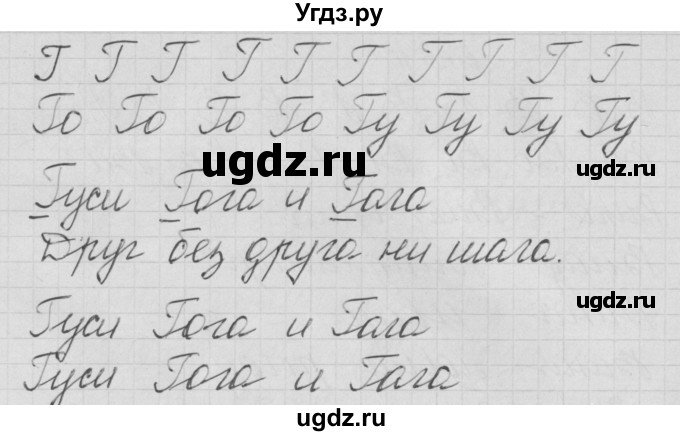 Угдз.ру
Г Г Г Г Г Г Г Г Г Г
Го Го Го Го Гу Гу Гу Гу
ugdz.ru
ugdz.ru
Гуси Гога и Гага
Друг без друга ни шага.
ugdz.ru
Гуси Гога и Гага
Гуси Гога и Гага
ugdz.ru